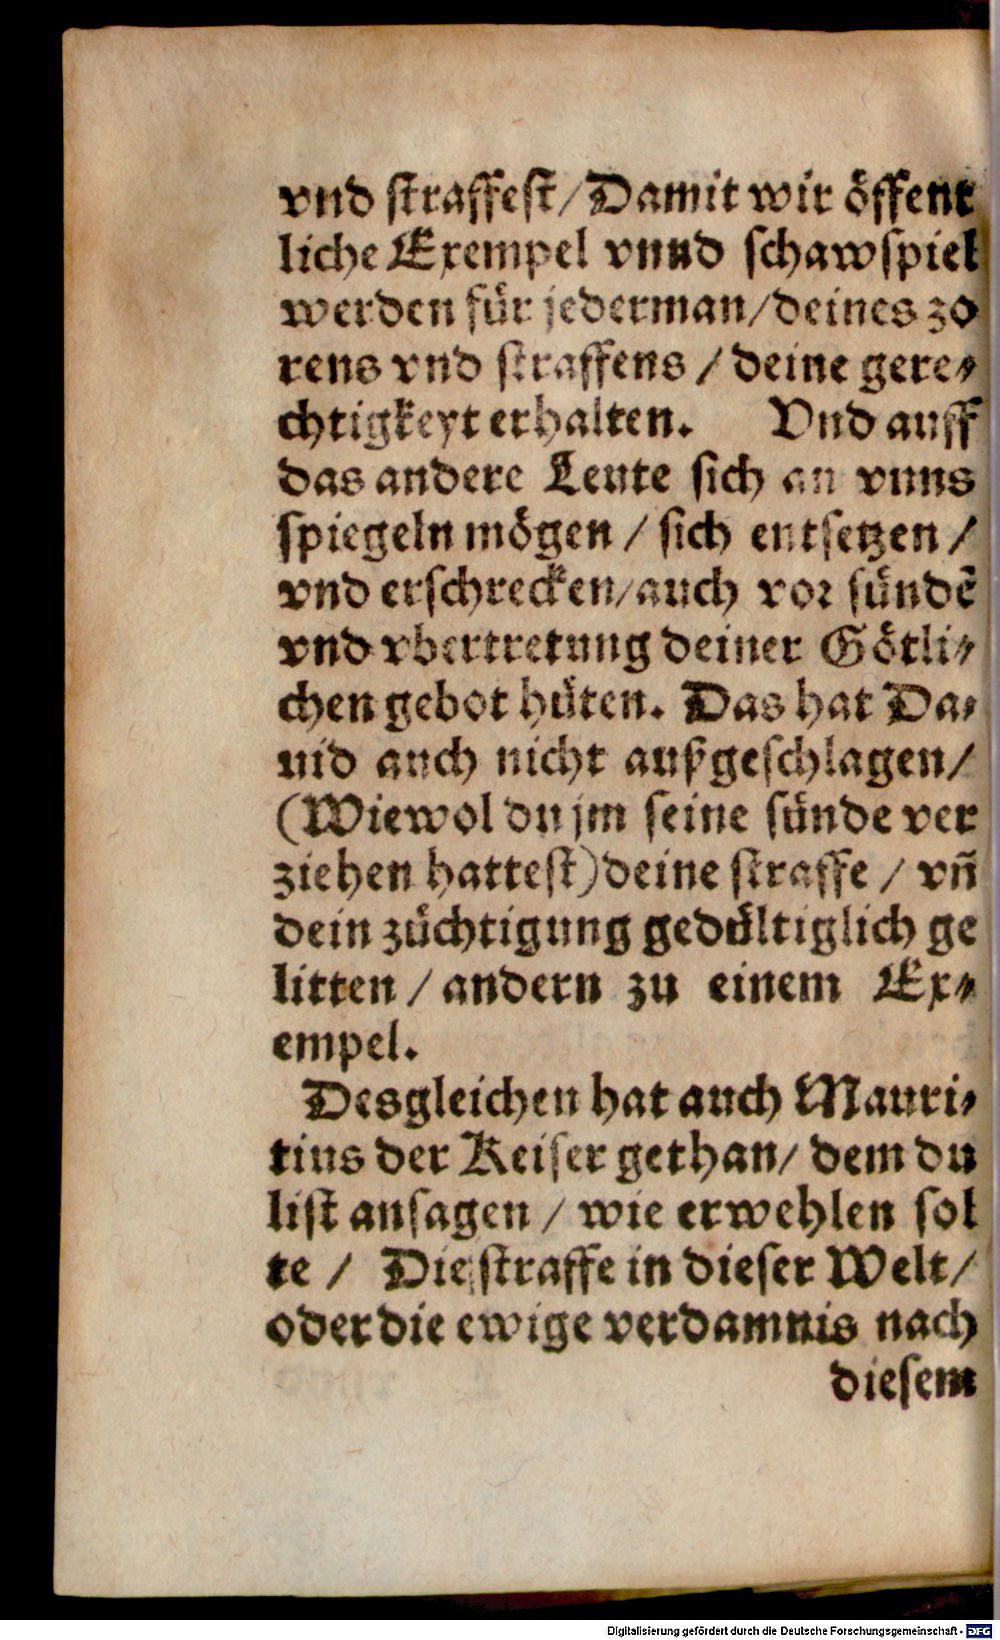 vnd straffest/Damit wir öffent
liche Exempel vnnd schawspiel
werden für jederman/deines zo
rens vnd straffens / deine gere⸗
chtigkeyt erhalten. Vnd auff
das andere Leute sich an vnns
spiegeln mögen / sich entsetzen /
vnd erschrecken/auch vor sündē
vnd vbertretung deiner Götli⸗
chen gebot hüten. Das hat Da⸗
uid auch nicht außgeschlagen/
(Wiewol du jm seine sünde ver
ziehen hattest)deine straffe / vñ
dein züchtigung gedültiglich ge
litten / andern zu einem Ex⸗
empel.
Desgleichen hat auch Mauri⸗
tius der Keiser gethan/ dem du
list ansagen / wie erwehlen sol
te / Die straffe in dieser Welt/
oder die ewige verdamnis nach
diesem
Digitalisierung gefördert durch die Deutsche Forschungsgemeinschaft - DFG